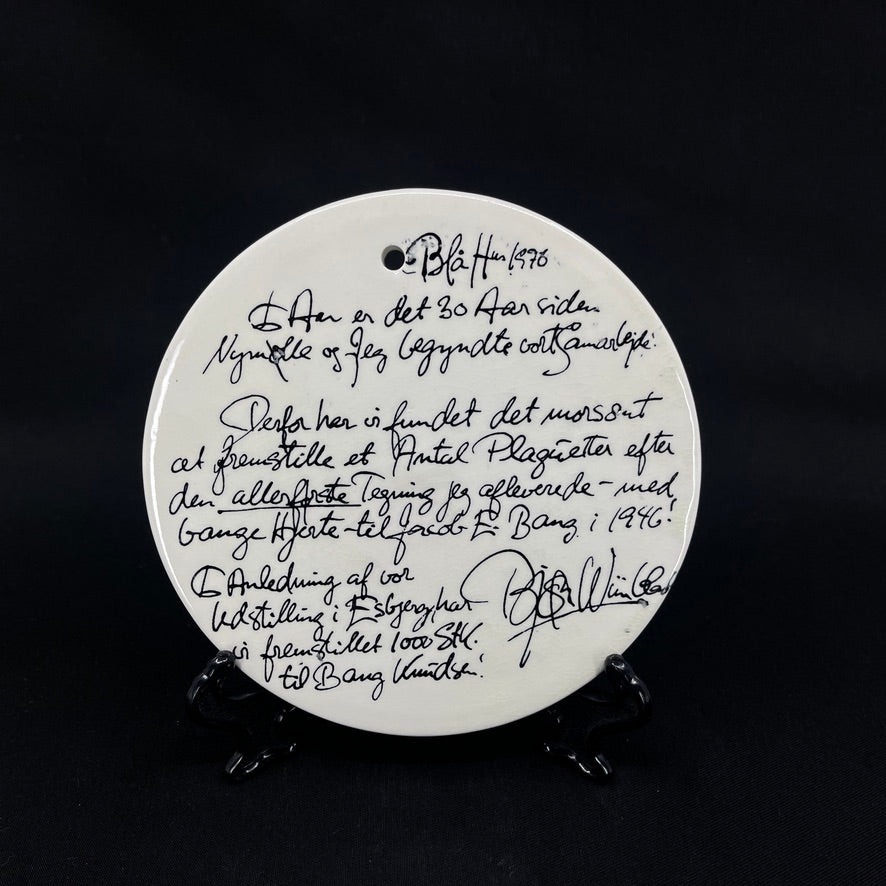 Blå Hus 1976
I Aar er det 30 Aar siden
Nymølle og Jeg begyndte vort Samarbejde!
Derfor har vi fundet det morsomt
at fremstille et Antal Plaquetter efter
den allerførste Tegning jeg afleverede - med
bange Hjerte - til Jacob E. Bang i 1946!
I Anledning af vor
Udstilling i Esbjerg har
vi fremstillet 1000 Stk.
til Bang Knudsen!
Bjørn Wiinblad